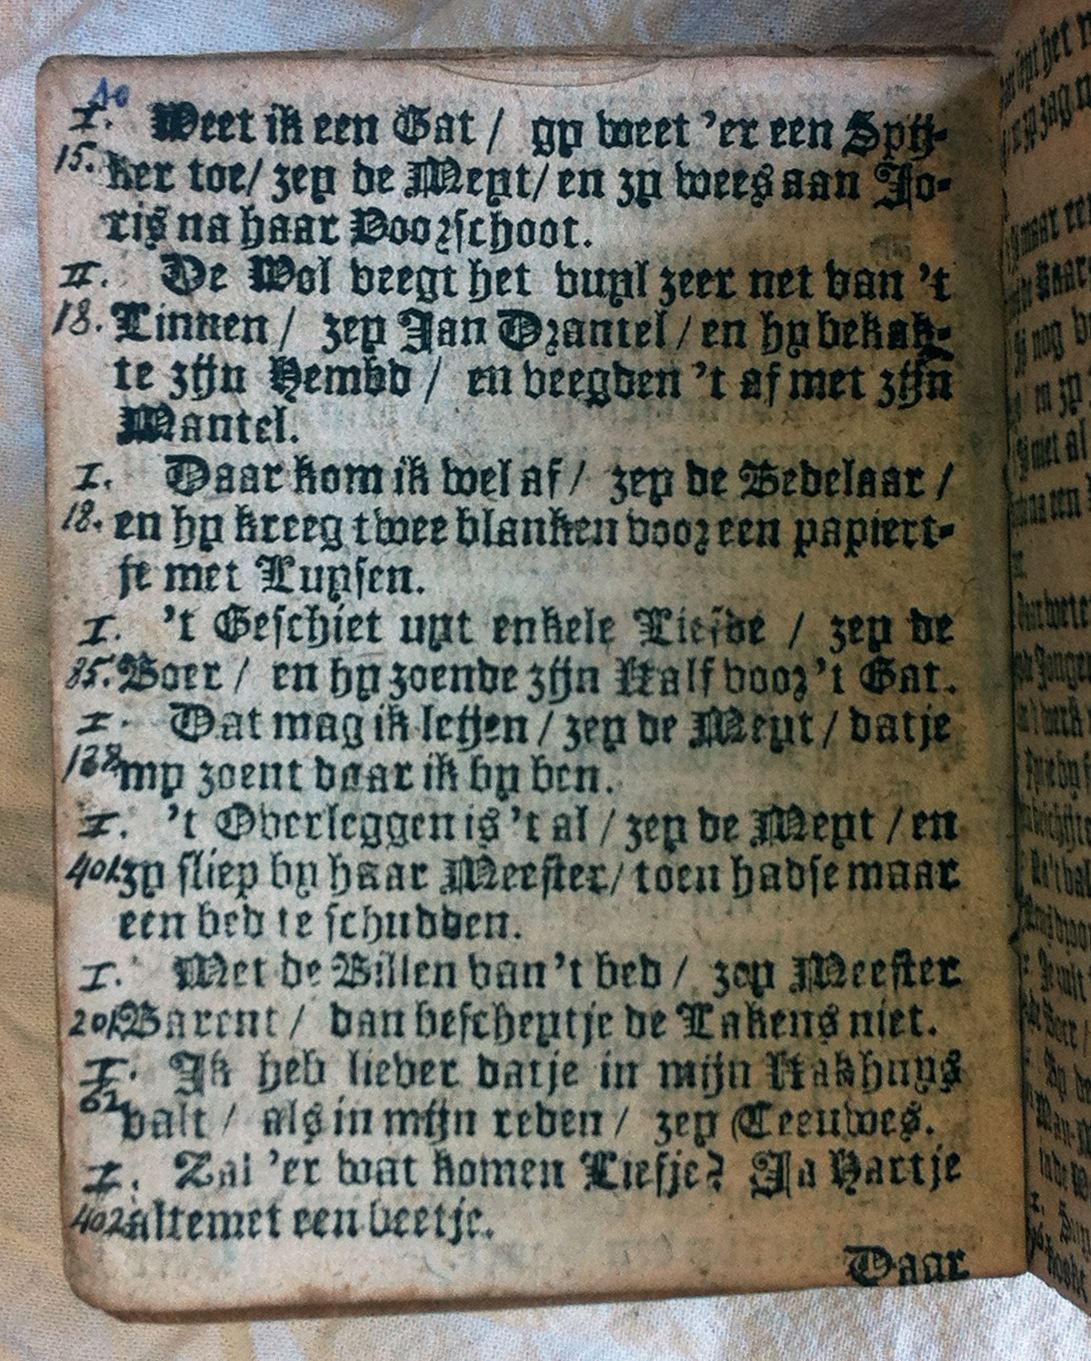 10
I. Weet ik een Gat / gy weet 'er een Spij-
15. ker toe/ zey de Meyt/ en zy wees aan Jo-
ris na haar Voorschoot.
II. De Wol veegt het vuyl zeer net van 't
18. Linnen / zey Jan Drantel / en hy bekak-
te zijn Hembd / en veegden 't af met zijn
Mantel.
I. Daar kom ik wel af / zey de Bedelaar /
18. en hy kreeg twee blanken voor een papiert-
je met Luysen.
I. 't Geschiet uyt enkele Liefde / zey de
85. Boer / en hy zoende zijn Kalf voor 't Gat.
I. Dat mag ik leijen / zey de Meyt / datje
138 my zoent daar ik by ben.
I. 't Overleggen is 't al / zey de Meyt / en
401. zy sliep by haar Meester / toen hadse maar
een bed te schudden.
I. Met de Billen van 't bed / zey Meester
201. Barent / dan bescheytje de Lakens niet.
I. Ik heb liever datje in mijn Kakhuys
62. valt / als in mijn reden / zey Teeuwes.
I. Zal 'er wat komen Liefje? Ja Hartje
402. altemet een beetje.
Daar